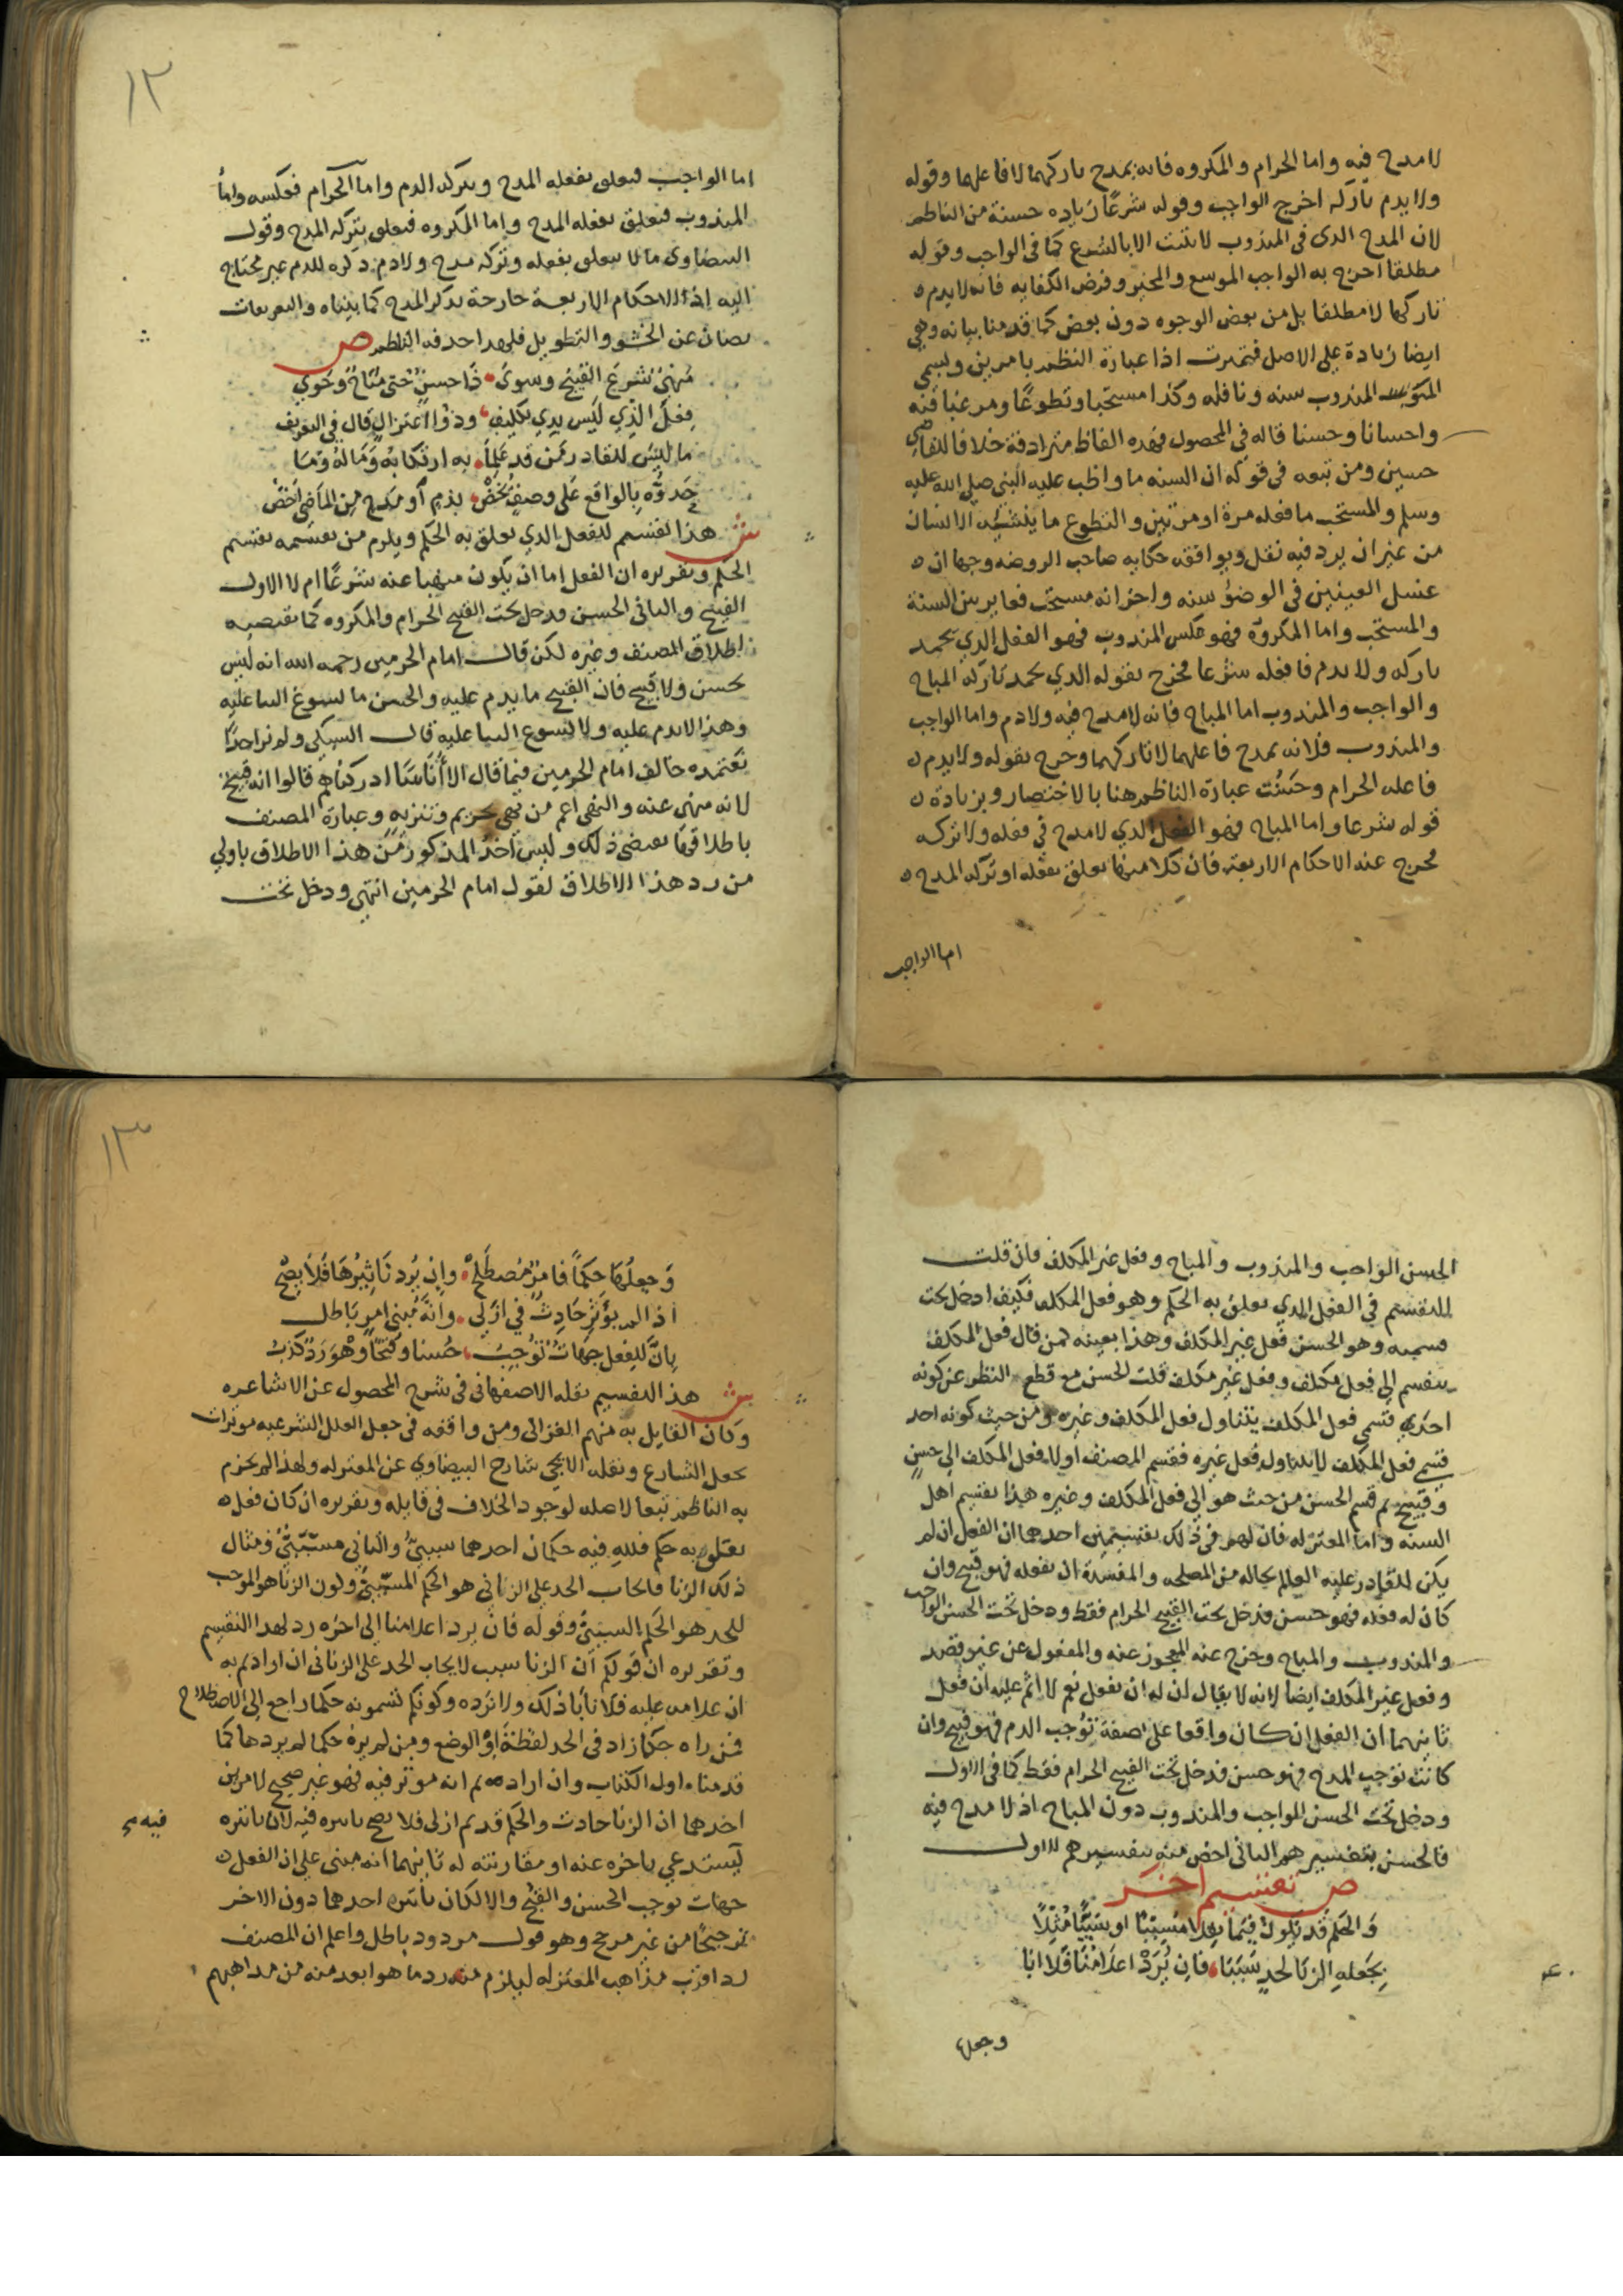 لا مدح فيه واما الحرام والمكروه فانه يمدح تاركهما لا فاعلهما وقوله
ولا يذم تاركه اخرج الواجب وقوله شرعًا زياده حسنة من الناظم
لان المدح الذى فى المندوب لا يثبت الا بالشرع كما فى الواجب وقوله
مطلقا اخرج به الواجب الموسع والمخير وفرض الكفايه فانه لا يذم
تاركها لا مطلقا بل من بعض الوجوه دون بعض كما قدمنا بيانه وهى
ايضا زيادة على الاصل فتميزت اذا عبارة النظم بامرين ويسمى
المندوب سنه ونافله وكذا مستحبا وتطوعًا ومرغبا فيه
واحسانا وحسنا قاله فى المحصول فهذه الفاظ مترادفة خلافا للقاضى
حسين ومن تبعه فى قوله ان السنه ما واظب عليه النبى صلى الله عليه
وسلم والمستحب ما فعله مرة او مرتين والتطوع ما ينشئه الانسان
من غير ان يرد فيه نقل ويوافقه حكايه صاحب الروضه وجها ان
غسل العينين فى الوضوء سنه واخر انه مستحب فغاير بين السنة
والمستحب واما المكروه فهو عكس المندوب فهو الفعل الذي يحمد
تاركه ولا يذم فاعله شرعا فخرج بقوله الذي يحمد تاركه المباح
والواجب والمندوب اما المباح فانه لا مدح فيه ولا ذم واما الواجب
والمندوب فلانه يمدح فاعلهما لا تاركهما وخرج بقوله ولا يذم
فاعله الحرام وحسنت عبارة الناظم هنا بالاختصار وبزيادة
قوله شرعا واما المباح فهو الفعل الذي لا مدح في فعله ولا تركه
فخرج عنه الاحكام الاربعة فان كلا منها تعلق بفعله او تركه المدح
اما الواجب
١٢
اما الواجب فيعلق بفعله المدح وبتركه الذم واما الحرام فعكسه واما
المندوب فيعلق بفعله المدح واما المكروه فيعلق بتركه المدح وقول
البيضاوى ما لا يتعلق بفعله وتركه مدح ولا ذم ذكره للذم غير محتاج
اليه اذ الاحكام الاربعة خارجة بذكر المدح كما بيناه والتعريفات
تصان عن الحشو والتطويل فلهذا حذفه الناظم ص
منهىّ شرع القبيح وسوى ذا حسن حتى مباح وحوي
فعل الذي ليس بذي تكليف وذو اعتزال قال في التعريف
ما ليس للقادر ممن قد علما به ارتكابه وماله وما
حدوّه بالواقع على وصف يخص بذم او مدح من الماضي اخص
ش هذا تقسيم للفعل الذي تعلق به الحكم ويلزم من تقسيمه تقسيم
الحكم وتقريره ان الفعل اما ان يكون منهيا عنه شرعًا ام لا الاول
القبيح والثانى الحسن ودخل تحت القبيح الحرام والمكروه كما يقتضيه
اطلاق المصنف وغيره لكن قال امام الحرمين رحمه الله انه ليس
بحسن ولا قبيح فان القبيح ما يذم عليه والحسن ما يسوغ الثنا عليه
وهذا لا يذم عليه ولا يسوغ الثنا عليه قال السبكي ولم نر احدًا
يعتمده خالف امام الحرمين فيما قال الا أناسا ادركناهم قالوا انه قبيح
لانه منهى عنه والنهى اعم من نهى تحريم وتنزيه وعبارة المصنف
باطلاقها تقتضى ذلك وليس اخذ المذكور من هذا الاطلاق باولي
من رد هذا الاطلاق لقول امام الحرمين انتهى ودخل تحت
الحسن الواجب والمندوب والمباح وفعل غير المكلف فان قلت
التقسيم فى الفعل الذي تعلق به الحكم وهو فعل المكلف فكيف ادخل تحت
قسميه وهو الحسن فعل غير المكلف وهذا بعينه كمن قال فعل المكلف
ينقسم الى فعل مكلف وفعل غير مكلف قلت الحسن مع قطع النظر عن كونه
احد قسمي فعل المكلف يتناول فعل المكلف وغيره ومن حيث كونه احد
قسمي فعل المكلف لا يتناول فعل غيره فقسم المصنف اولا فعل المكلف الى حسن
وقبيح ثم قسم الحسن من حيث هو الى فعل المكلف وغيره هذا تقسيم اهل
السنه واما المعتزله فان لهم فى ذلك تقسيمين احدهما ان الفعل ان لم
يكن للقادر عليه العالم بحاله من المصلحه والمفسدة ان يفعله فهو قبيح وان
كان له فعله فهو حسن فدخل تحت القبيح الحرام فقط ودخل تحت الحسن الواجب
والمندوب والمباح وخرج عنه المعجوز عنه والمفعول عن غير قصد
وفعل غير المكلف ايضا لانه لا يقال ان له ان يفعل نعم لا اثم عليه ان فعل
ثانيهما ان الفعل ان كان واقعا على صفة توجب الذم فهو قبيح وان
كانت توجب المدح فهو حسن فدخل تحت القبيح الحرام فقط كما فى الاول
ودخل تحت الحسن الواجب والمندوب دون المباح اذ لا مدح فيه
فالحسن بتفسيرهم الثانى اخص منه بتفسيرهم الاول
ص تقسيم اخر
والحكم قد يكون فيما نقلا مسببًا او سببًا مثّلا
بجعله الزنا لحدٍ سببا فان يُرد اعلامنا فلا ابا
وجعلها
١٣
وجعلها حكما فامرٌ مصطلح وان يُرد تاثيرها فلا يصح
اذ لم يؤثر حادث في ازلي وانه مبني امر باطل
بان للفعل جهاتٌ توجب حُسنا وقبحًا وهو ردٌ كذب
ش هذا التقسيم نقله الاصفهانى فى شرح المحصول عن الاشاعره
وكان القايل به منهم الغزالى ومن وافقه فى جعل العلل الشرعيه موثرات
بجعل الشارع ونقله الايجى شارح البيضاوي عن المعتزله ولهذا لم يجزم
به الناظم تبعا لاصله لوجود الخلاف فى قايله وتقريره ان كان فعل
يتعلق به حكم فلله فيه حكمان احدهما سببىّ والثاني مسبّبىّ ومثال
ذلك الزنا فايجاب الحد على الزاني هو الحكم المسبّبىّ وكون الزنا هو الموجب
للحد هو الحكم السببىّ وقوله فان يرد اعلامنا الى اخره رد لهذا التقسيم
وتقريره ان قولكم ان الزنا سبب لايجاب الحد على الزانى ان اردتم به
انه علامه عليه فلا نابا ذلك ولا نرده وكونكم تسمونه حكما راجع الى الاصطلاح
فمن راه حكما زاد فى الحد لفظة او الوضع ومن لم يره حكما لم يردها كما
قدمناه اول الكتاب وان اردتم انه موثر فيه فهو غير صحيح لامرين
احدهما ان الزنا حادث والحكم قديم ازلى فلا يصح تاثيره فيه لان تاثيره
فيه
يستدعي تاخره عنه او مقارنته له ثانيهما انه مبنى على ان الفعل
جهات توجب الحسن والقبح والا لكان تاثير احدها دون الاخر
ترجيحًا من غير مرجح وهو قول مردود باطل واعلم ان المصنف
رد اقرب مذاهب المعتزله ليلزم منه رد ما هو ابعد منه من مذاهبهم